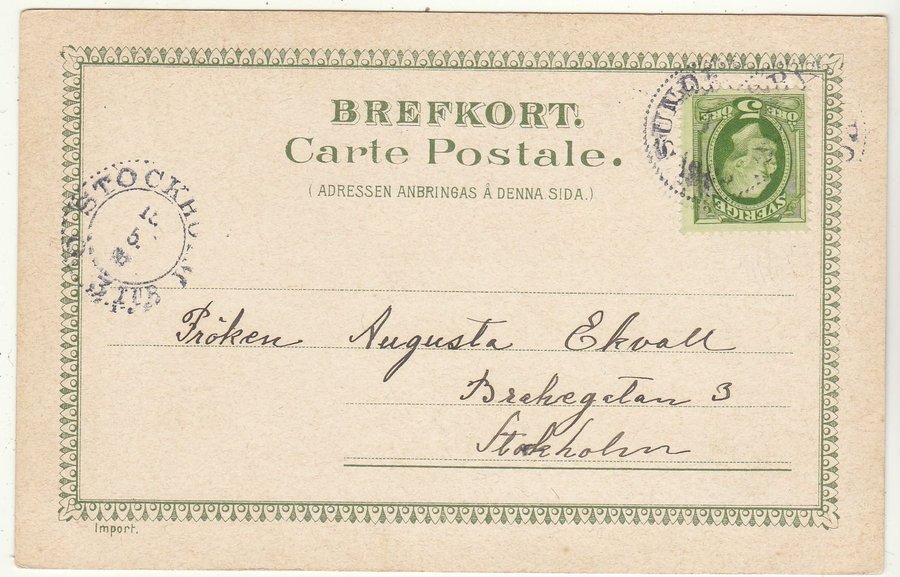 BREFKORT.
Carte Postale.
(ADRESSEN ANBRINGAS Å DENNA SIDA.)
5
ÖRE
SVERIGE
STOCKHOLM
Fröken Augusta Ekvall
Brahegatan 3
Stockholm
Import.